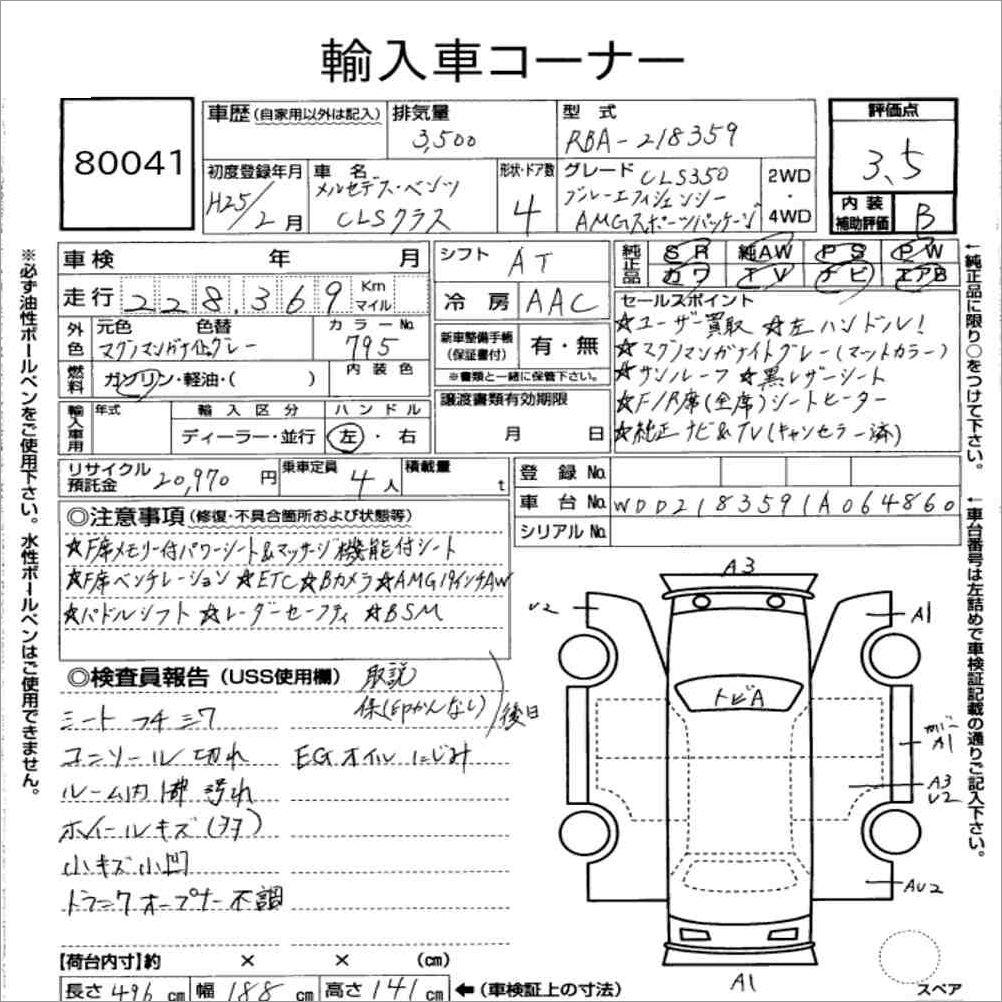 輸入車コーナー
80041
車歴(自家用以外は記入) 排気量 3,500 型式 RBA-218359
評価点 3.5
初度登録年月 H25/2月 車名 メルセデス・ベンツ CLSクラス 形状・ドア数 4 グレード CLS350 ブルーエフィシェンシー AMGスポーツパッケージ 2WD・4WD
内装補助評価 B
車検 年 月
シフト AT
純正品 SR 純AW PS PW
カワ TV ナビ エアB
走行 228,369 Km マイル
冷房 AAC
外色 元色 色替 マグノマンガナイトグレー カラーNo. 795
内装色
燃料 ガソリン・軽油・( )
新車整備手帳(保証書付) 有・無
※書類と一緒に保管下さい。
セールスポイント
☆ユーザー買取 ☆左ハンドル!
☆マグノマンガナイトグレー(マットカラー)
☆サンルーフ ☆黒レザーシート
☆F/R席(全席)シートヒーター
☆純正ナビ&TV(キャンセラー済)
輸入車用 年式 輸入区分 ディーラー・並行 ハンドル 左・右
譲渡書類有効期限
月 日
リサイクル預託金 20,970円 乗車定員 4人 積載量 t
登録No.
車台No. WDD2183591A064860
シリアルNo.
◎注意事項(修復・不具合箇所および状態等)
☆F席メモリー付パワーシート&マッサージ機能付シート
☆F席ベンチレーション ☆ETC ☆Bカメラ ☆AMG19インチAW
☆パドルシフト ☆レーダーセーフティ ☆BSM
◎検査員報告(USS使用欄) 取説
保(印かんなし) 後日
シート フチ シワ
コンソール切れ EGオイルにじみ
ルーム内 汚れ
ホイールキズ
小キズ小凹
トランクオープナー不調
【荷台内寸】約 × × (cm)
長さ 496 cm 幅 188 cm 高さ 141 cm ←(車検証上の寸法)
A3
U2
A1
トビA
A1
A3
U2
AU2
A1
スペア
※必ず油性ボールペンをご使用下さい。水性ボールペンはご使用できません。
←純正品に限り○をつけて下さい。
←車台番号は左詰めで車検証記載の通りご記入下さい。